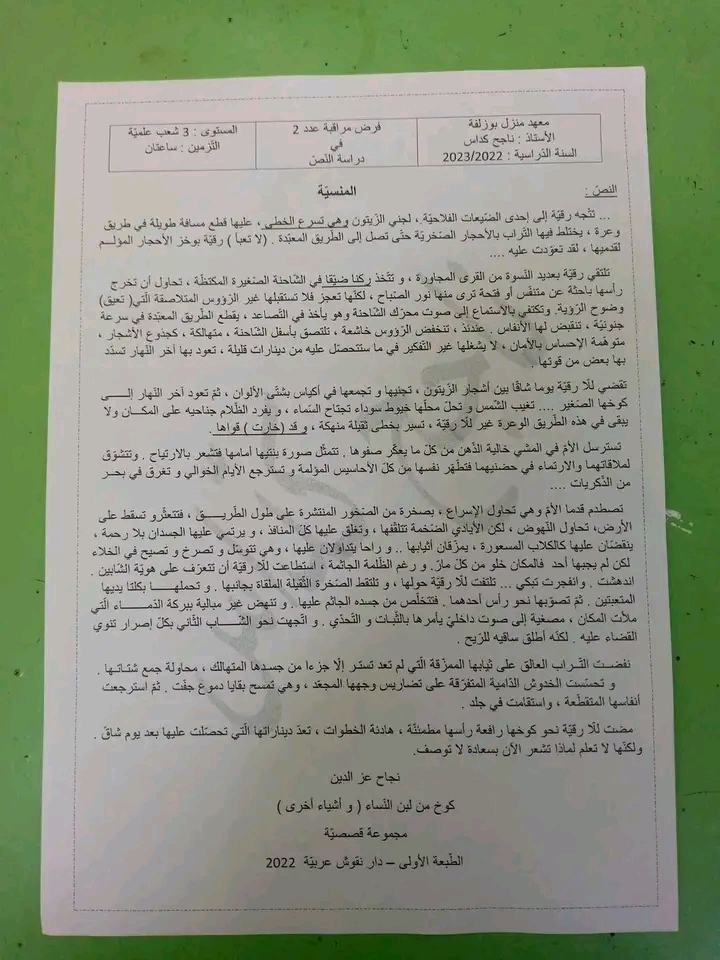 معهد منزل بوزلفة
الأستاذ : ناجح كداس
السنة الدّراسية : 2023/2022
فرض مراقبة عدد 2
في
دراسة النّصّ
المستوى : 3 شعب علميّة
التّزمين : ساعتان
النصّ :
المنسيّة
... تتّجه رقيّة إلى إحدى الضّيعات الفلاحيّة، لجني الزّيتون وهي تسرع الخطى ، عليها قطع مسافة طويلة في طريق
وعرة ، يختلط فيها التّراب بالأحجار الصّخريّة حتّى تصل إلى الطّريق المعبّدة . (لا تعبأ ) رقيّة بوخز الأحجار المؤلـــم
لقدميها ، لقد تعوّدت عليه ....
تلتقي رقيّة بعديد النّسوة من القرى المجاورة ، و تتّخذ ركنا ضيّقا في الشّاحنة الصّغيرة المكتظّة ، تحاول أن تخرج
رأسها باحثة عن متنفّس أو فتحة ترى منها نور الصّباح ، لكنّها تعجز فلا تستقبلها غير الرّؤوس المتلاصقة الّتي( تعيق)
وضوح الرّؤية. وتكتفي بالاستماع إلى صوت محرّك الشّاحنة وهو يأخذ في التّصاعد ، يقطع الطّريق المعبّدة في سرعة
جنونيّة ، تنقبض لها الأنفاس . عندئذ ، تنخفض الرّؤوس خاشعة ، تلتصق بأسفل الشّاحنة ، متهالكة ، كجذوع الأشجار ،
متوهّمة الإحساس بالأمان ، لا يشغلها غير التّفكير في ما ستتحصل عليه من دينارات قليلة ، تعود بها آخر النّهار تسدّد
بها بعض من قوتها .
تقضي للّا رقيّة يوما شاقّا بين أشجار الزّيتون ، تجنيها و تجمعها في أكياس بشتّى الألوان ، ثمّ تعود آخر النّهار إلـــى
كوخها الصّغير .... تغيب الشّمس و تحلّ محلّها خيوط سوداء تجتاح السّماء ، و يفرد الظّلام جناحيه على المكـــان ولا
يبقى في هذه الطّريق الوعرة غير للّا رقيّة ، تسير بخطى ثقيلة منهكة ، و قد (خارت ) قواها .
تسترسل الأمّ في المشي خالية الذّهن من كلّ ما يعكّر صفوها . تتمثّل صورة بنتيها أمامها فتشعر بالارتياح . وتتشوّق
لملاقاتهما والارتماء في حضنيهما فتطهّر نفسها من كلّ الأحاسيس المؤلمة و تسترجع الأيام الخوالي و تغرق في بحـــر
من الذّكريات ....
تصطدم قدما الأمّ وهي تحاول الإسراع ، بصخرة من الصّخور المنتشرة على طول الطّريـــق ، فتتعثّرو تسقط على
الأرض، تحاول النّهوض ، لكن الأيادي الضّخمة تتلقّفها ، وتغلق عليها كلّ المنافذ ، و يرتمي عليها الجسدان بلا رحمة ،
ينقضّان عليها كالكلاب المسعورة ، يمزّقان أثيابها .. و راحا يتداولان عليها ، وهي تتوسّل و تصرخ و تصيح في الخلاء
لكن لم يجبها أحد فالمكان خلو من كلّ مارّ. و رغم الظّلمة الجاثمة ، استطاعت للّا رقيّة أن تتعرّف على هويّة الشّابين .
اندهشت . وانفجرت تبكي ... تلتفت للّا رقيّة حولها ، و تلتقط الصّخرة الثّقيلة الملقاة بجانبها . و تحملهـــا بكلتا يديها
المتعبتين . ثمّ تصوّبها نحو رأس أحدهما . فتتخلّص من جسده الجاثم عليها . و تنهض غير مبالية ببركة الدّمـــاء الّتي
ملأت المكان ، مصغية إلى صوت داخليّ يأمرها بالثّبات و التّحدّي . و اتّجهت نحو الشّـــاب الثّاني بكلّ إصرار تنوي
القضاء عليه . لكنّه أطلق ساقيه للرّيح .
نفضـت التّـراب العالق على ثيابها الممزّقة الّتي لم تعد تستـر إلّا جزءا من جسـدها المتهالك ، محاولة جمع شتـاتهـا .
و تحسّست الخدوش الدّامية المتفرّقة على تضاريس وجهها المجعّد ، وهي تمسح بقايا دموع جفّت . ثمّ استرجعت
أنفاسها المتقطّعة ، واستقامت في جلد .
مضت للّا رقيّة نحو كوخها رافعة رأسها مطمئنّة ، هادئة الخطوات ، تعدّ ديناراتها الّتي تحصّلت عليها بعد يوم شاقّ .
ولكنّها لا تعلم لماذا تشعر الآن بسعادة لا توصف.
نجاح عز الدين
كوخ من لبن النّساء ( و أشياء أخرى )
مجموعة قصصيّة
الطّبعة الأولى – دار نقوش عربيّة 2022